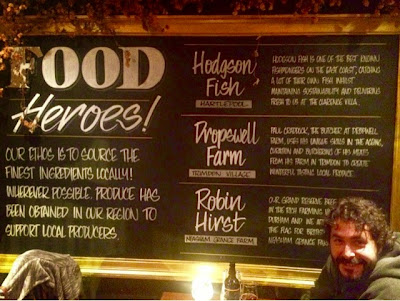 FOOD
Heroes!
OUR ETHOS IS TO SOURCE THE
FINEST INGREDIENTS LOCALLY!
WHEREVER POSSIBLE, PRODUCE HAS
BEEN OBTAINED IN OUR REGION TO
SUPPORT LOCAL PRODUCERS.
Hodgson
Fish
HARTLEPOOL
HODGSON FISH IS ONE OF THE BEST KNOWN
FISHMONGERS ON THE EAST COAST, CATCHING
A LOT OF THEIR OWN FISH WHILST
MAINTAINING SUSTAINABILITY AND DELIVERING
FRESH TO US AT THE CLARENCE VILLA.
Dropswell
Farm
TRIMDON VILLAGE
PAUL CRADDOCK, THE BUTCHER AT DROPSWELL
FARM, USES HIS UNIQUE SKILLS IN THE AGEING,
AND BUTCHERING OF HIS MEATS
FROM HIS FARM IN TRIMDON TO CREATE
WONDERFUL TASTING LOCAL PRODUCE.
Robin
Hirst
NEASHAM GRANGE FARM
OUR GRAND RESERVE
IN THE RICH FARMING
DURHAM AND WE
THE FLAG FOR
NEASHAM GRANGE